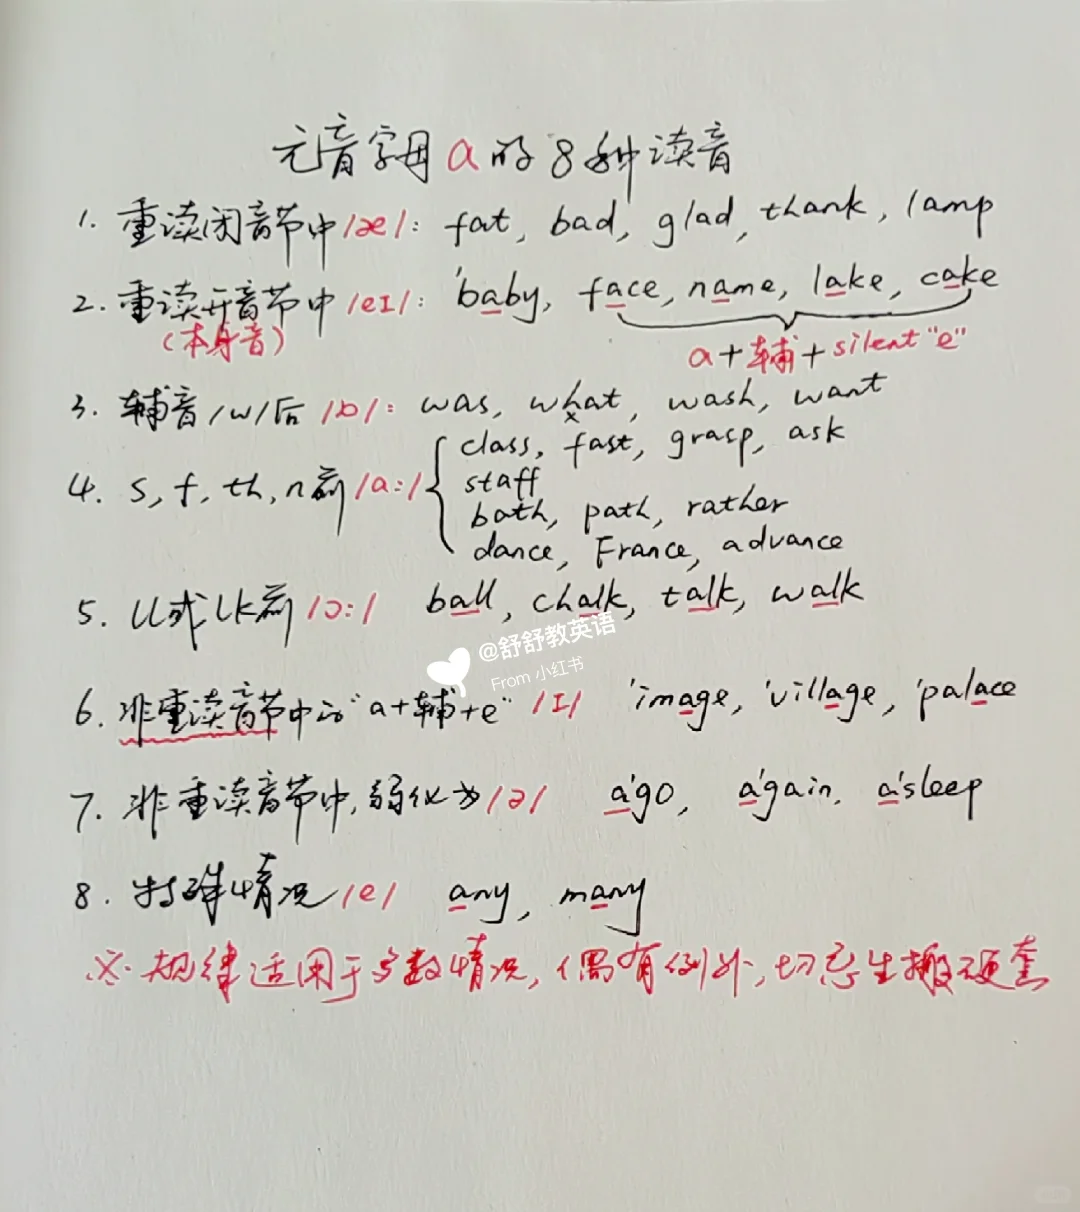 元音字母a的8种读音
1. 重读闭音节中/æ/: fat, bad, glad, thank, lamp
2. 重读开音节中/eI/: 'baby, face, name, lake, cake
(本身音)
a+辅+silent "e"
3. 辅音/w/后/ɒ/: was, what, wash, want
4. s, f, th, n前/a:/ { class, fast, grasp, ask
staff
bath, path, rather
dance, France, advance
5. ll或lk前/ɔ:/ ball, chalk, talk, walk
@舒舒教英语
From 小红书
6. 非重读音节中的"a+辅+e" /I/ 'image, 'village, 'palace
7. 非重读音节中,弱化为/ə/ a'go, a'gain, a'sleep
8. 特殊情况/e/ any, many
※. 规律适用于多数情况, 偶有例外, 切忌生搬硬套